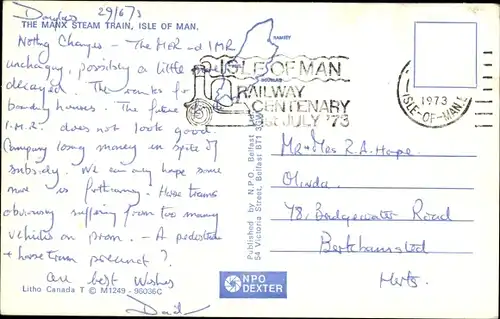 Douglas 29/6/73
THE MANX STEAM TRAIN, ISLE OF MAN.
Nothing Changes - The MER and IMR
unchanging, possibly a little more
decayed. The same for
boarding houses. The future
I.M.R. does not look good.
Company losing money in spite of
subsidy. We can only hope some
more is forthcoming. Horse trams
obviously suffering from too many
vehicles on prom. - A pedestrian
+ horse tram precinct?
All best Wishes
Litho Canada T © M1249 - 96036C
RAMSEY
DOUGLAS
ISLE OF MAN
RAILWAY
CENTENARY
1st JULY '73
1973
ISLE-OF-MAN
Published by N.P.O. Belfast
54 Victoria Street, Belfast BT1
NPO
DEXTER
Mr & Mrs R.A. Hope.
Olinda.
78, Bridgewater Road
Berkhamsted
Herts.